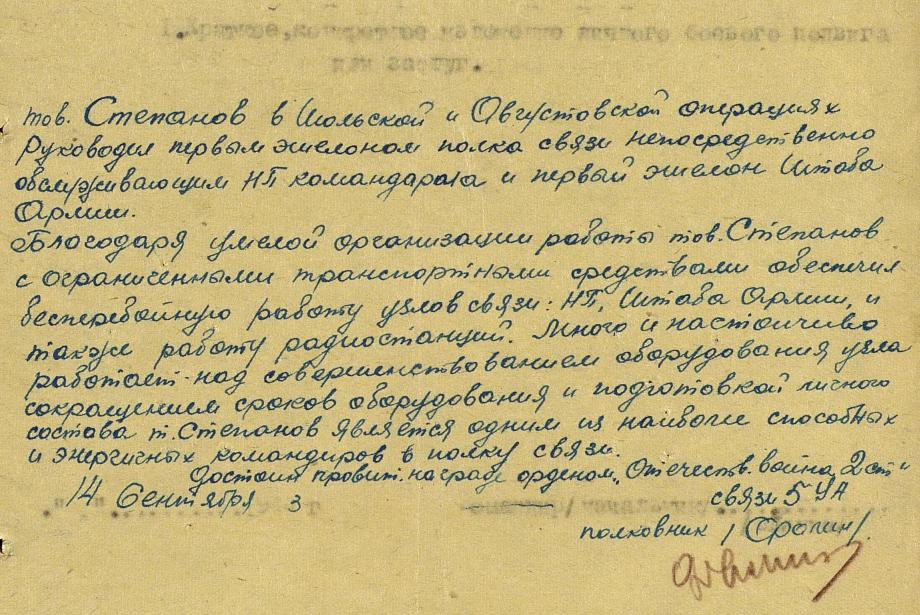 1. Краткое, конкретное изложение личного боевого подвига
или заслуг.
тов. Степанов в Июльской и Августовской операциях
Руководил первым эшелоном полка связи непосредственно
обслуживающим НП командарма и первый эшелон Штаба
Армии.
Благодаря умелой организации работы тов. Степанов
с ограниченными транспортными средствами обеспечил
бесперебойную работу узлов связи: НП, Штаба Армии, и
также работу радиостанций. Много и настойчиво
работает над совершенствованием оборудования узла
сокращением сроков оборудования и подготовкой личного
состава т. Степанов является одним из наиболее способных
и энергичных командиров в полку связи.
Достоин правит. награде орденом „Отечеств. война 2 ст"
14 Сентября 3 связи 5 УА
полковник /